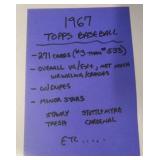 1967
TOPPS BASEBALL
- 271 CARDS (#3 THRU #533)
- OVERALL VG/EX+, NOT MUCH
WRINKLING/CREASES
- W/DUPES
- MINOR STARS
STAURY STOTTLEMYRE
TRESH CARDENAL
ETC.....